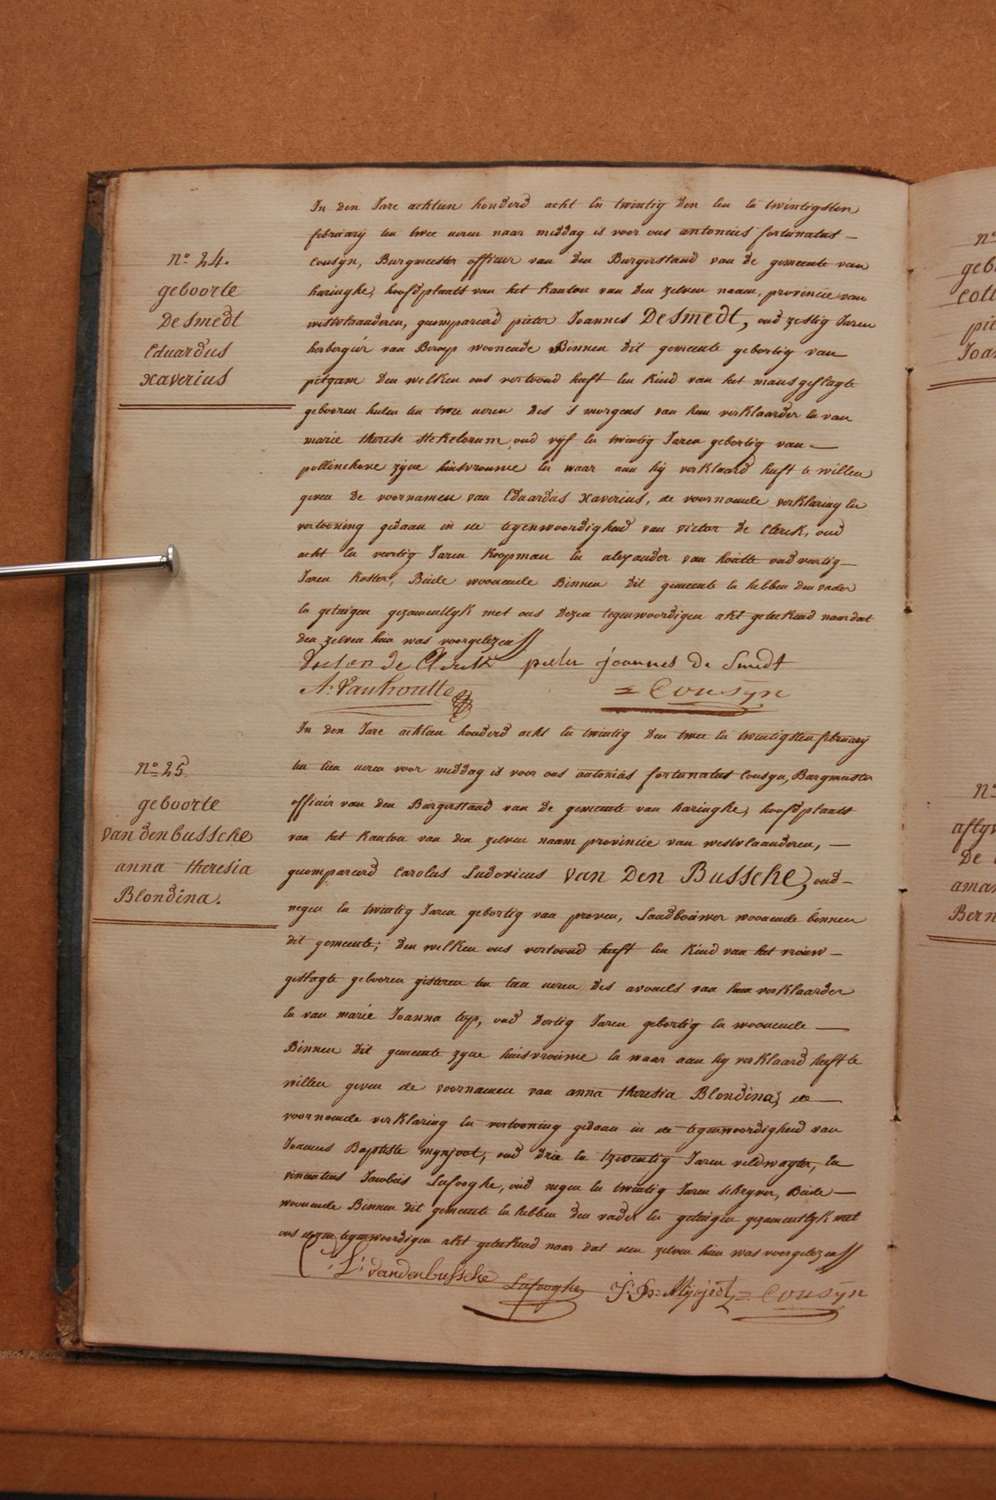 n° 24.
geboorte
De Smedt
Eduardus
xaverius
In den Jare achtien honderd acht en twintig den een en twintigsten
februarij ten twee uren naar middag is voor ons antonius fortunatus
Cousyn, Burgmeester officier van den Burgerstand van de gemeente van
haringhe, hoofdplaats van het kanton van den zelven naam, provincie van
westvlaanderen, gecompareerd pieter Joannes De Smedt, oud zestig Jaren
herbergier van Beroep woonende Binnen dit gemeente gebortig van
pitgam den welken ons vertoond heeft een kind van het mansgeslagte
gebooren heden ten twee uren des 's morgens van hem verklaarder en van
marie therese stekelorum oud vyf en twintig Jaren gebortig van
pollinckove zyne huisvrouwe en waar aan hij verklaard heeft te willen
geven de voornamen van Eduardus xaverius, de voornoemde verklaring en
vertooning gedaan in de tegenwoordigheid van victor de Clerck, oud
acht en veertig Jaren koopman en alexander van houtte oud veertig
Jaren koster, Beide woonende Binnen dit gemeente en hebben den vader
en getuigen gezamentlyk met ons dezen tegenwoordigen akt geteekend naar dat
den zelven hun was voorgelezen
de Clerck pieter joannes De Smedt
A. Vanhoutte = Cousÿn
n° 25
geboorte
van den bussche
anna theresia
Blondina.
In den Jare achtien honderd acht en twintig den twee en twintigsten februarij
ten tien uren voor middag is voor ons antonius fortunatus Cousyn, Burgmeester
officier van den Burgerstand van de gemeente van haringhe, hoofdplaats
van het kanton van den zelven naam provincie van westvlaanderen,
gecompareerd Carolus Ludovicus Van Den Bussche, oud
negen en twintig Jaren gebortig van proven, Landbouwer woonende binnen
dit gemeente, den welken ons vertoond heeft een kind van het vrouw
geslagte gebooren gisteren ten tien uren des avonds van hem verklaarder
en van marie Joanna top, oud dertig Jaren gebortig en woonende
Binnen dit gemeente zyne huisvrouwe en waar aan hy verklaard heeft te
willen geven de voornamen van anna theresia Blondina, de
voornoemde verklaring en vertooning gedaan in de tegenwoordigheid van
Joannes Baptiste oud drie en tzeventig Jaren veldwagter, en
vincentius Jacobus Lafooghe, oud negen en twintig Jaren schryver, Beide
woonende Binnen dit gemeente en hebben den vader en getuigen gezamentlyk met
ons dezen tegenwoordigen akt geteekend naar dat den zelven hun was voorgelezen
C: L: vandenbussche Lafooghe J: B: = Cousÿn
n°
geb
n°
De
Bern